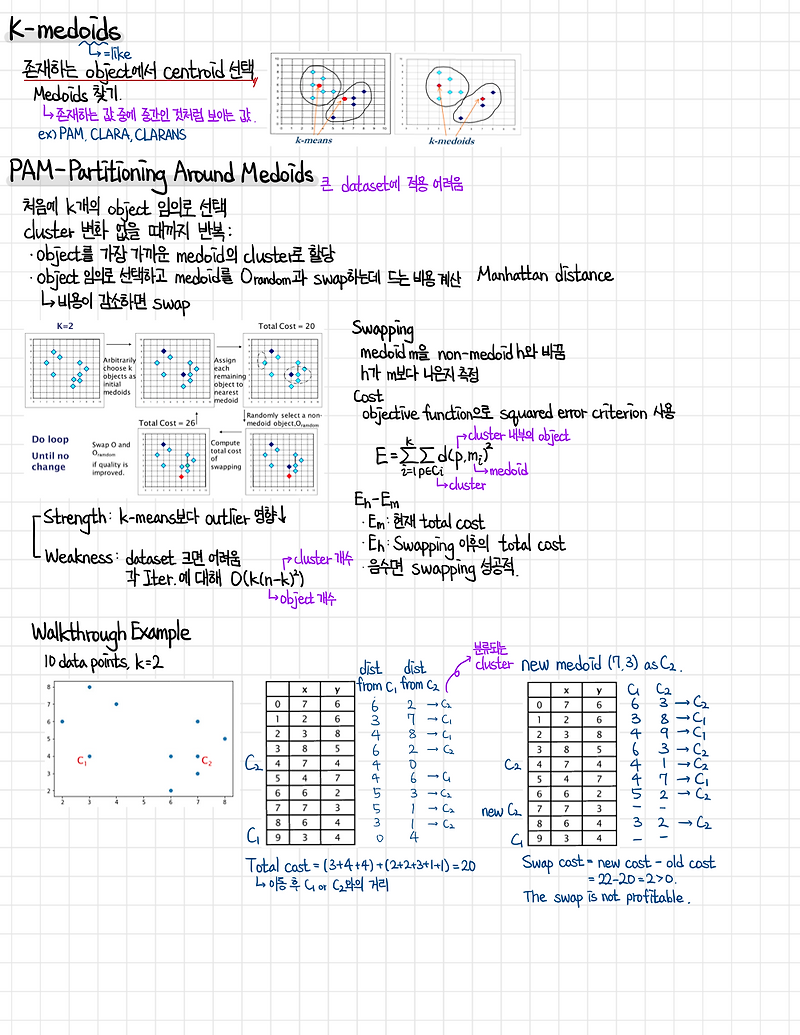 K-medoids
↳=like
존재하는 object에서 centroid 선택
Medoids 찾기.
↳존재하는 값 중에 중간인 것처럼 보이는 값.
ex) PAM, CLARA, CLARANS
k-means
k-medoids
PAM-Partitioning Around Medoids 큰 dataset에 적용 어려움
처음에 k개의 object 임의로 선택
cluster 변화 없을 때까지 반복:
·object를 가장 가까운 medoid의 cluster로 할당
·object 임의로 선택하고 medoid를 Orandom과 swap하는데 드는 비용 계산 Manhattan distance
↳비용이 감소하면 swap
K=2
Total Cost = 20
Arbitrarily choose k objects as initial medoids
Assign each remaining object to nearest medoid
Total Cost = 26
Randomly select a non-medoid object,Orandom
Do loop
Until no change
Swap O and Orandom if quality is improved.
Compute total cost of swapping
Swapping
medoid m을 non-medoid h와 바꿈
h가 m보다 나은지 측정
Cost
objective function으로 squared error criterion 사용
→cluster 내부의 object
E=∑ᵏᵢ₌₁∑p∈Cᵢ d(p,mᵢ)²
↳medoid
↳cluster
Eh-Em
·Em: 현재 total cost
·Eh: Swapping 이후의 total cost
·음수면 swapping 성공적.
Strength: k-means보다 outlier 영향↓
Weakness: dataset 크면 어려움
→cluster 개수
각 Iter.에 대해 O(k(n-k)²)
↳object 개수
Walkthrough Example
10 data points, k=2
8
7
6
5
4
3
2
C₁
C₂
2 3 4 5 6 7 8
분류되는 cluster
dist from C₁ dist from C₂
x y
0 7 6 6 2 →C₂
1 2 6 3 7 →C₁
2 3 8 4 8 →C₁
3 8 5 6 2 →C₂
C₂ 4 7 4 4 0
5 4 7 4 6 →C₁
6 6 2 5 3 →C₂
7 7 3 5 1 →C₂
8 6 4 3 1 →C₂
C₁ 9 3 4 0 4
Total cost = (3+4+4)+(2+2+3+1+1)=20
↳이동 후 C₁ or C₂와의 거리
new medoid (7,3) as C₂.
x y C₁ C₂
0 7 6 6 3 →C₂
1 2 6 3 8 →C₁
2 3 8 4 9 →C₁
3 8 5 6 3 →C₂
C₂ 4 7 4 4 1 →C₂
5 4 7 4 7 →C₁
6 6 2 5 2 →C₂
new C₂ 7 7 3 - -
8 6 4 3 2 →C₂
C₁ 9 3 4 - -
Swap cost = new cost - old cost
= 22-20=2>0.
The swap is not profitable.